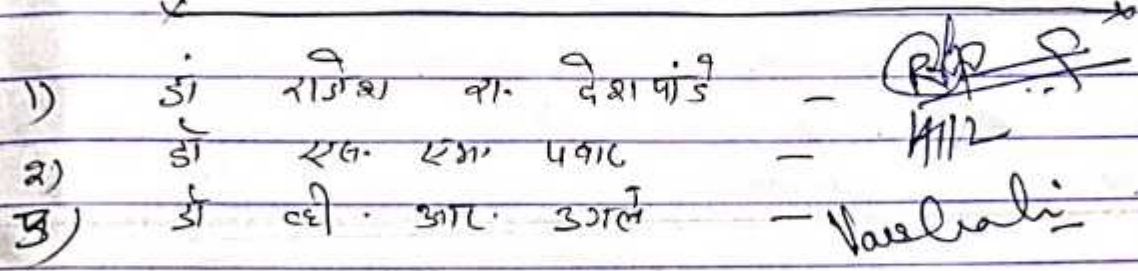 1) डॉ राजेश रा. देशपांडे -
२) डॉ एल. एम. पवार -
३) डॉ व्ही. आर. उगले - Vaishali